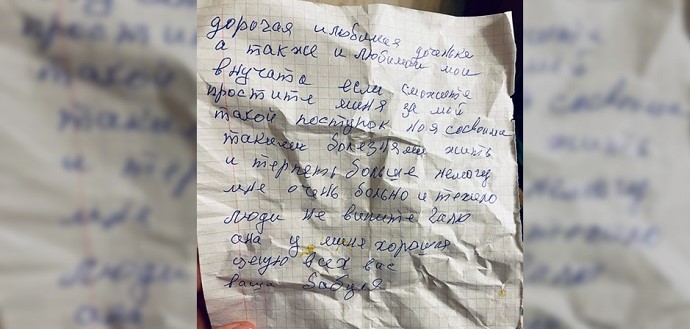 дорогая и любимая доченька
а также и любимаи мои
внучата если сможите
простите миня за мой
такой поступок но я сосвоими
такими болезнями жить
и терпеть больше немогу
мне очень больно и тежело
люди не вините Галю
ана у миня хорошая
целую всех вас
ваша бабуля